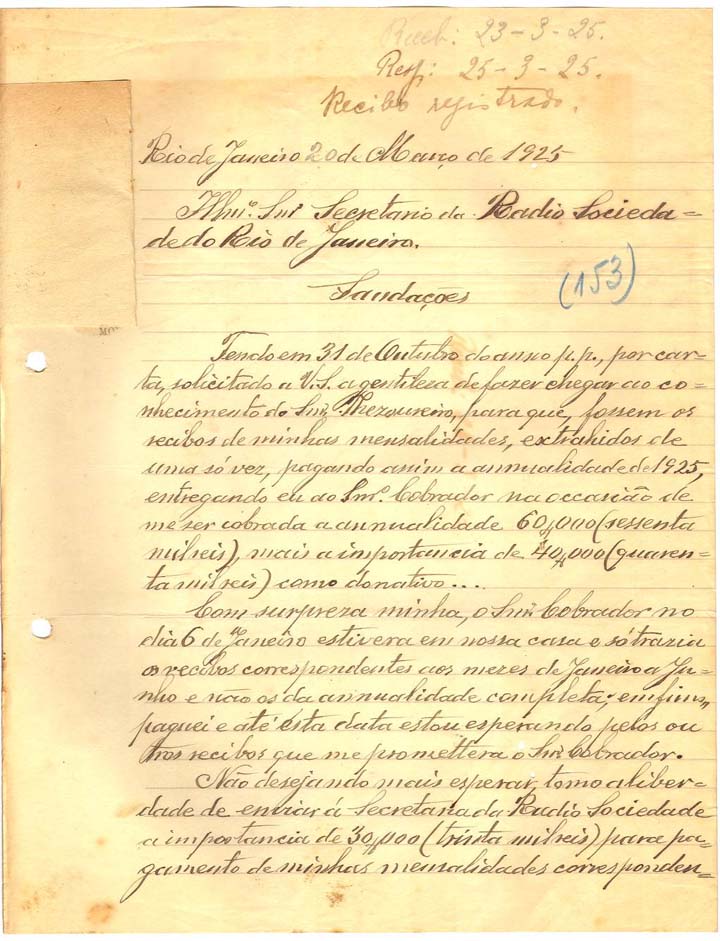 Receb: 23-3-25.
Resp: 25-3-25.
Recibo registrado.
Rio de Janeiro 20 de Março de 1925
Illmº. Snr Secretario da Radio Socieda=
de do Rio de Janeiro.
Saudações
(153)
Tendo em 31 de Outubro do anno p.p., por car=
ta, solicitado a V.S. a gentileza de fazer chegar ao co=
nhecimento do Snr. Thezoureiro, para que, fossem os
recibos de minhas mensalidades, extrahidos de
uma só vez, pagando assim a annualidade de 1925,
entregando eu ao Snr. Cobrador na occasião de
me ser cobrada a annualidade 60$000 (sessenta
mil reis), mais a importancia de 40$000 (quaren=
ta mil reis) como donativo...
Com surpreza minha, o Snr. Cobrador no
dia 6 de Janeiro estivera em nossa casa e só trazia
os recibos correspondentes aos mezes de Janeiro a Ju=
nho e não os da annualidade completa; emfim,
paguei e até ésta data estou esperando pelos ou
tros recibos que me promettera o Snr. Cobrador.
Não desejando mais esperar, tomo a liber=
dade de enviar á Secretaria da Radio Sociedade
a importancia de 30$000 (trinta mil reis) para pa=
gamento de minhas mensalidades corresponden=